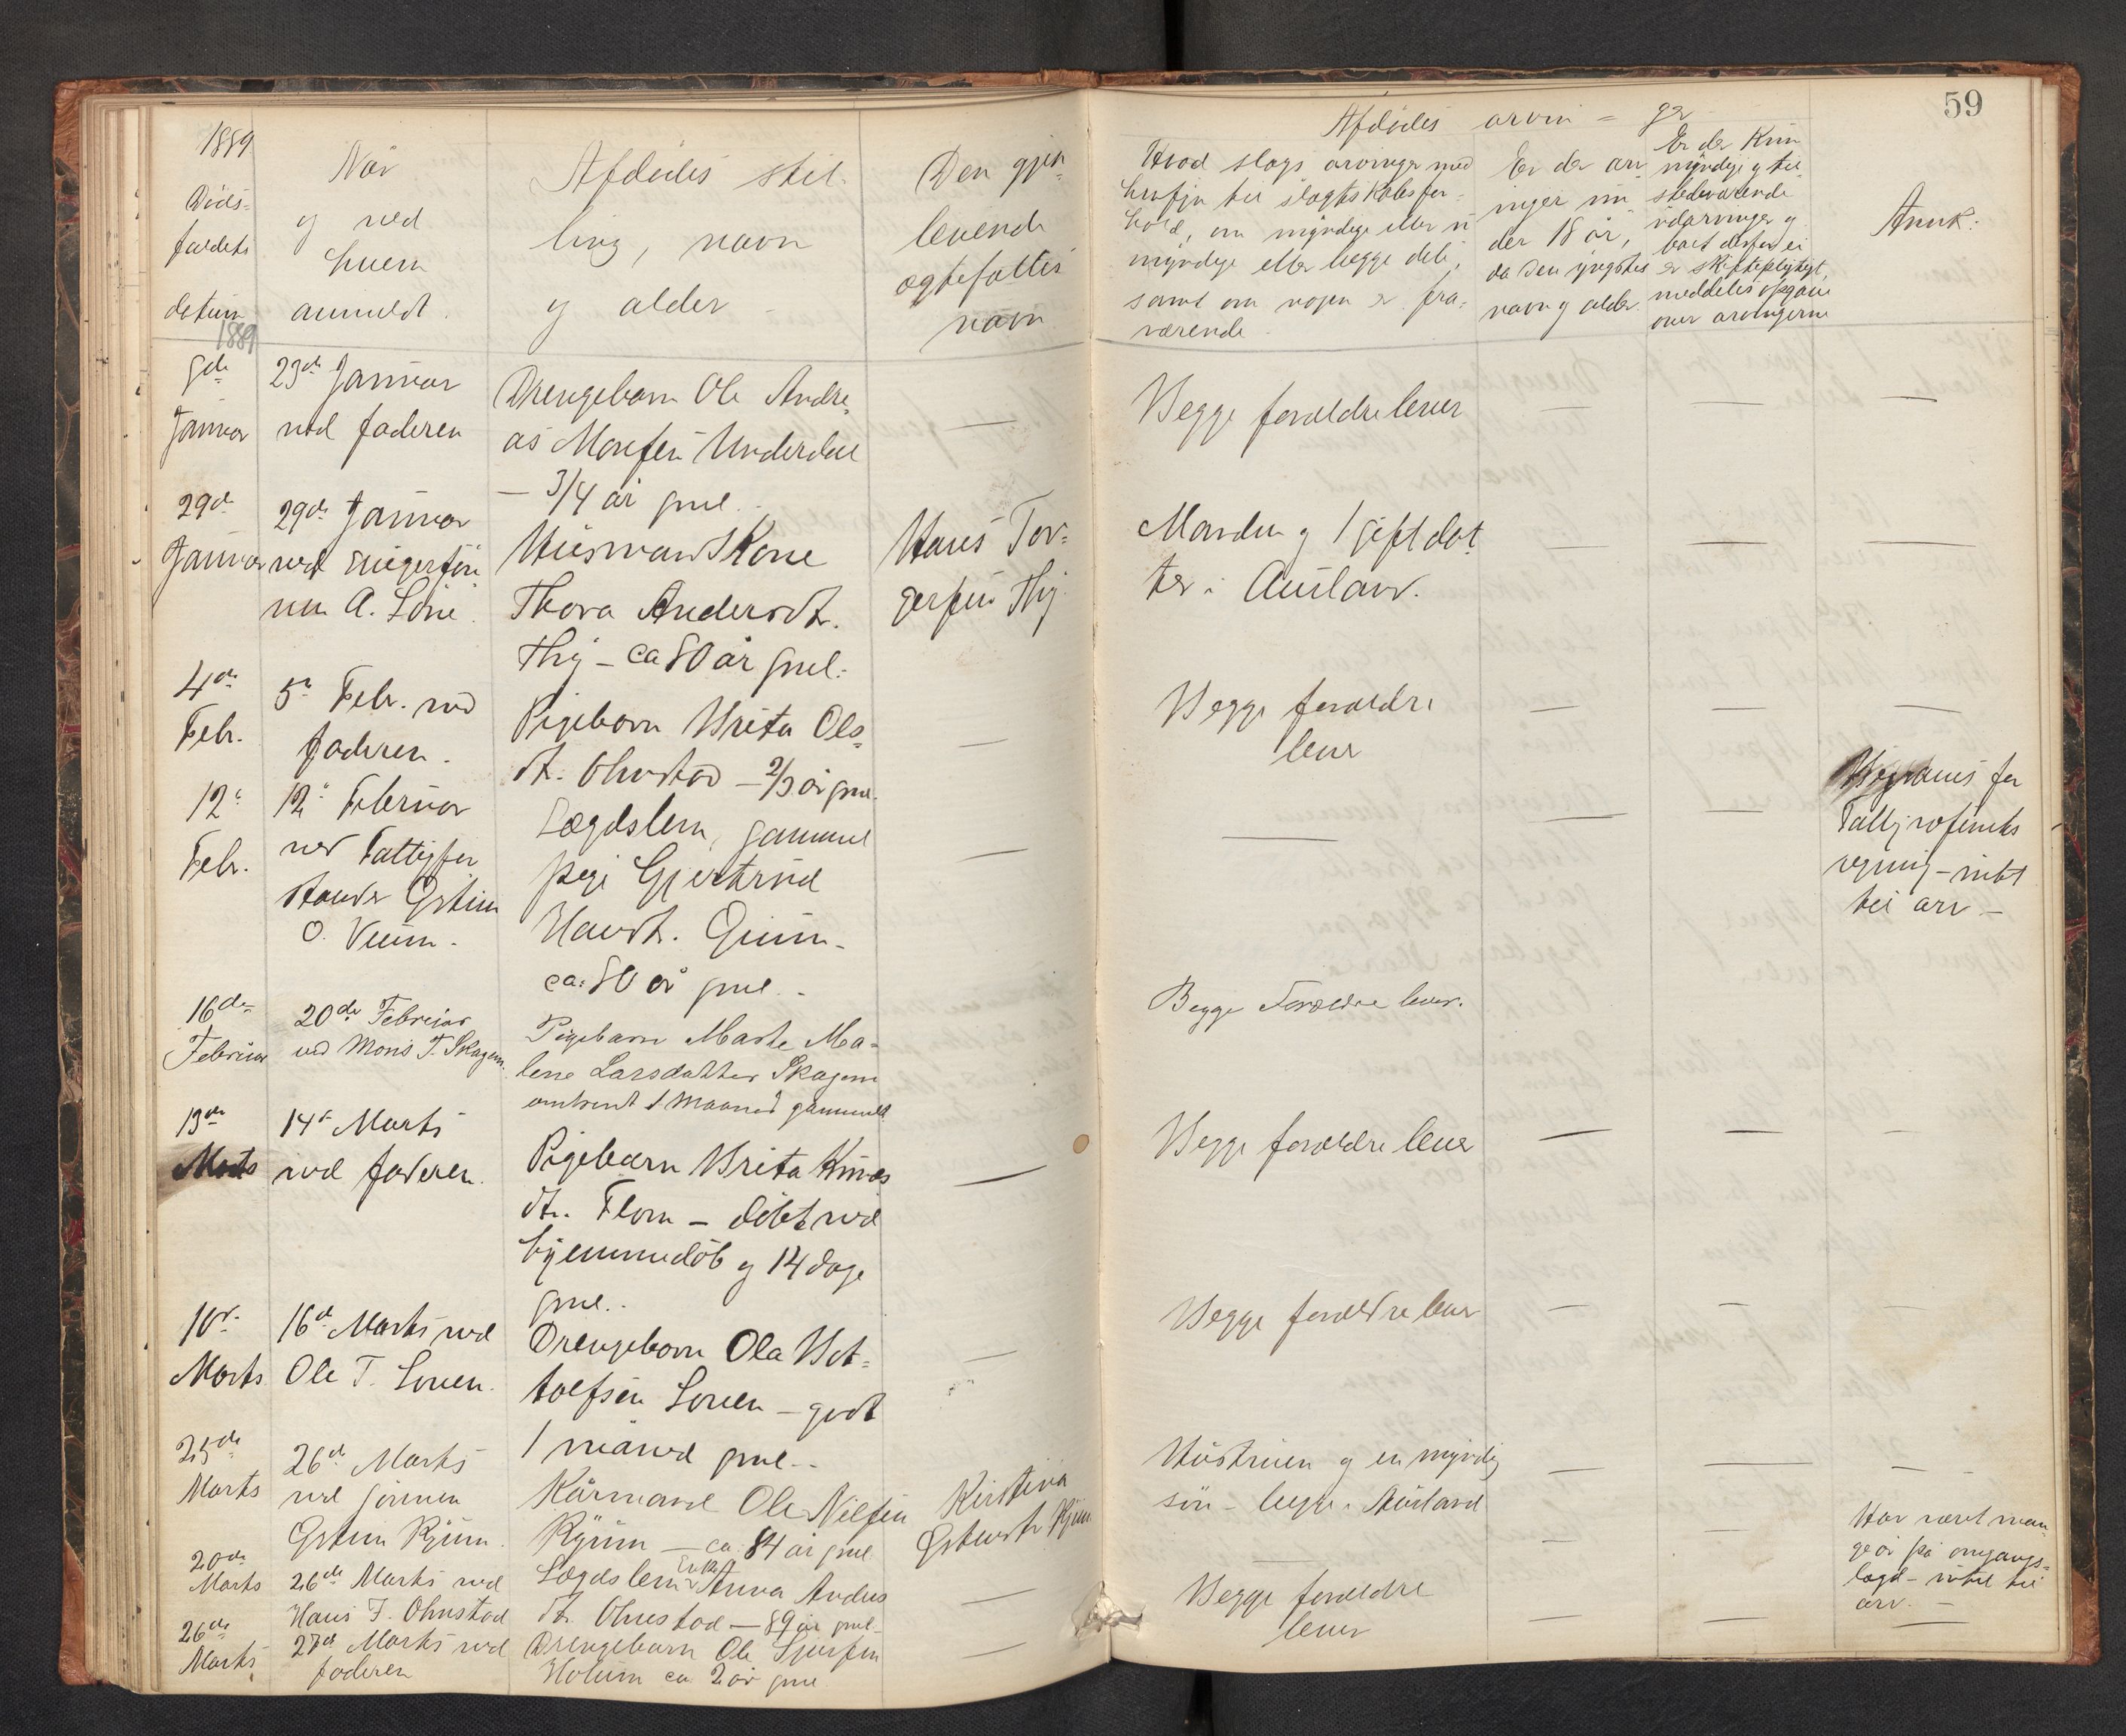 59
1889
Afdødes arvin = ger
Døds-
faldets
datum
1889
Når
og ved
hvem
anmeldt.
Afdødes stil-
ling, navn
og alder
Den gjen-
levende
ægtefælles
navn
Hvad slags arvinger med
hensyn til slægtskabsfor-
hold, om myndige eller u
myndige eller begge dele,
samt om nogen er fra-
værende
Er der arv
inger un
der 18 år,
da den yngstes
navn og alder
Er der kun
myndige og til
stedeværende
udarvinger og
boet derfor ei
er skiftepligtigt,
meddeles opgave
over arvingerne
Anmk.
9de
Januar
23de Januar
ved faderen
Drengebarn Ole Andre-
as Monsen Underdal
— 3/4 år gml.
—
Begge forældre lever
— — —
29de
Januar
29de Januar
ved
A. Lone
Husmandskone
Thora Andersdt.
Thy — ca 80 år gml.
Hans Tor-
gersen Thy
Manden og 1 gift dat
ter i Aurland.
— — —
4de
Febr.
5te Febr. ved
faderen.
Pigebarn Brita Ols-
dt. Ohnstad — 2/3 år gml.
—
Begge forældre
lever
— — —
12te
Febr.
12te Februar
ved Fattigfor
stander Østein
O. Vinn.
Lægdslem, gammel
pige Gjertrud
Hansdt.
ca. 80 år gml.
—
— — —
Begraves for
regning — intet
til arv —
16de
Februar
20de Februar
ved Mons T. Skagen.
Pigebarn Marte Ma-
lene Larsdatter Skagen
omtrent 1 Maaned gammel
Begge Forældre lever.
13de
Marts
14de Marts
ved faderen.
Pigebarn Brita Knuds
dtr. Flom — døbt ved
hjemmedåb og 14 dage
gml.
—
Begge forældre lever
— — —
10de
Marts
16de Marts ved
Ole T. Loven.
Drengebarn Ola Bot-
tolfsen Loven — godt
1 måned gml.
—
Begge forældre lever
— —
25de
Marts
26de Marts
ved sønnen
Østen Ryum.
Kårmand Ole Nilsen
Ryum — ca. 84 år gml.
Kristina
Østensdtr Ryum
Hustruen og en myndig
søn — begge i Aurland
— — —
20de
Marts
26de Marts ved
Hans J. Ohnstad
Lægdslem Enke Anna Anders
dt. Ohnstad — 89 år gml.
—
— — —
Har været man
ge år på omgangs-
lægd — intet til
arv. —
26de
Marts
27de Marts ved
faderen
Drengebarn Ole Sjursen
Holum ca. 2 år gml.
—
Begge forældre
lever
— — —